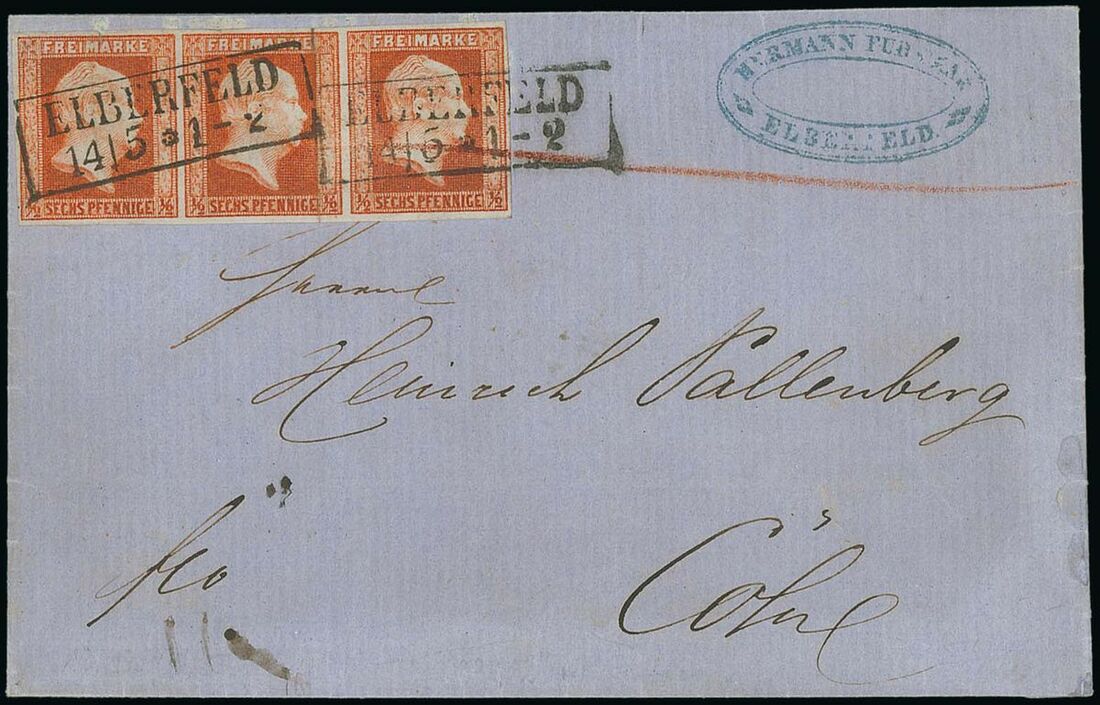 FREIMARKE FREIMARKE FREIMARKE
ELBERFELD ELBERFELD
14|5 * 1-2 14|5 * 1-2
½ SECHS PFENNIGE ½ ½ SECHS PFENNIGE ½ ½ SECHS PFENNIGE ½
HERMANN
ELBERFELD.
Herrn
Heinrich Pallenberg
fco
Cöln